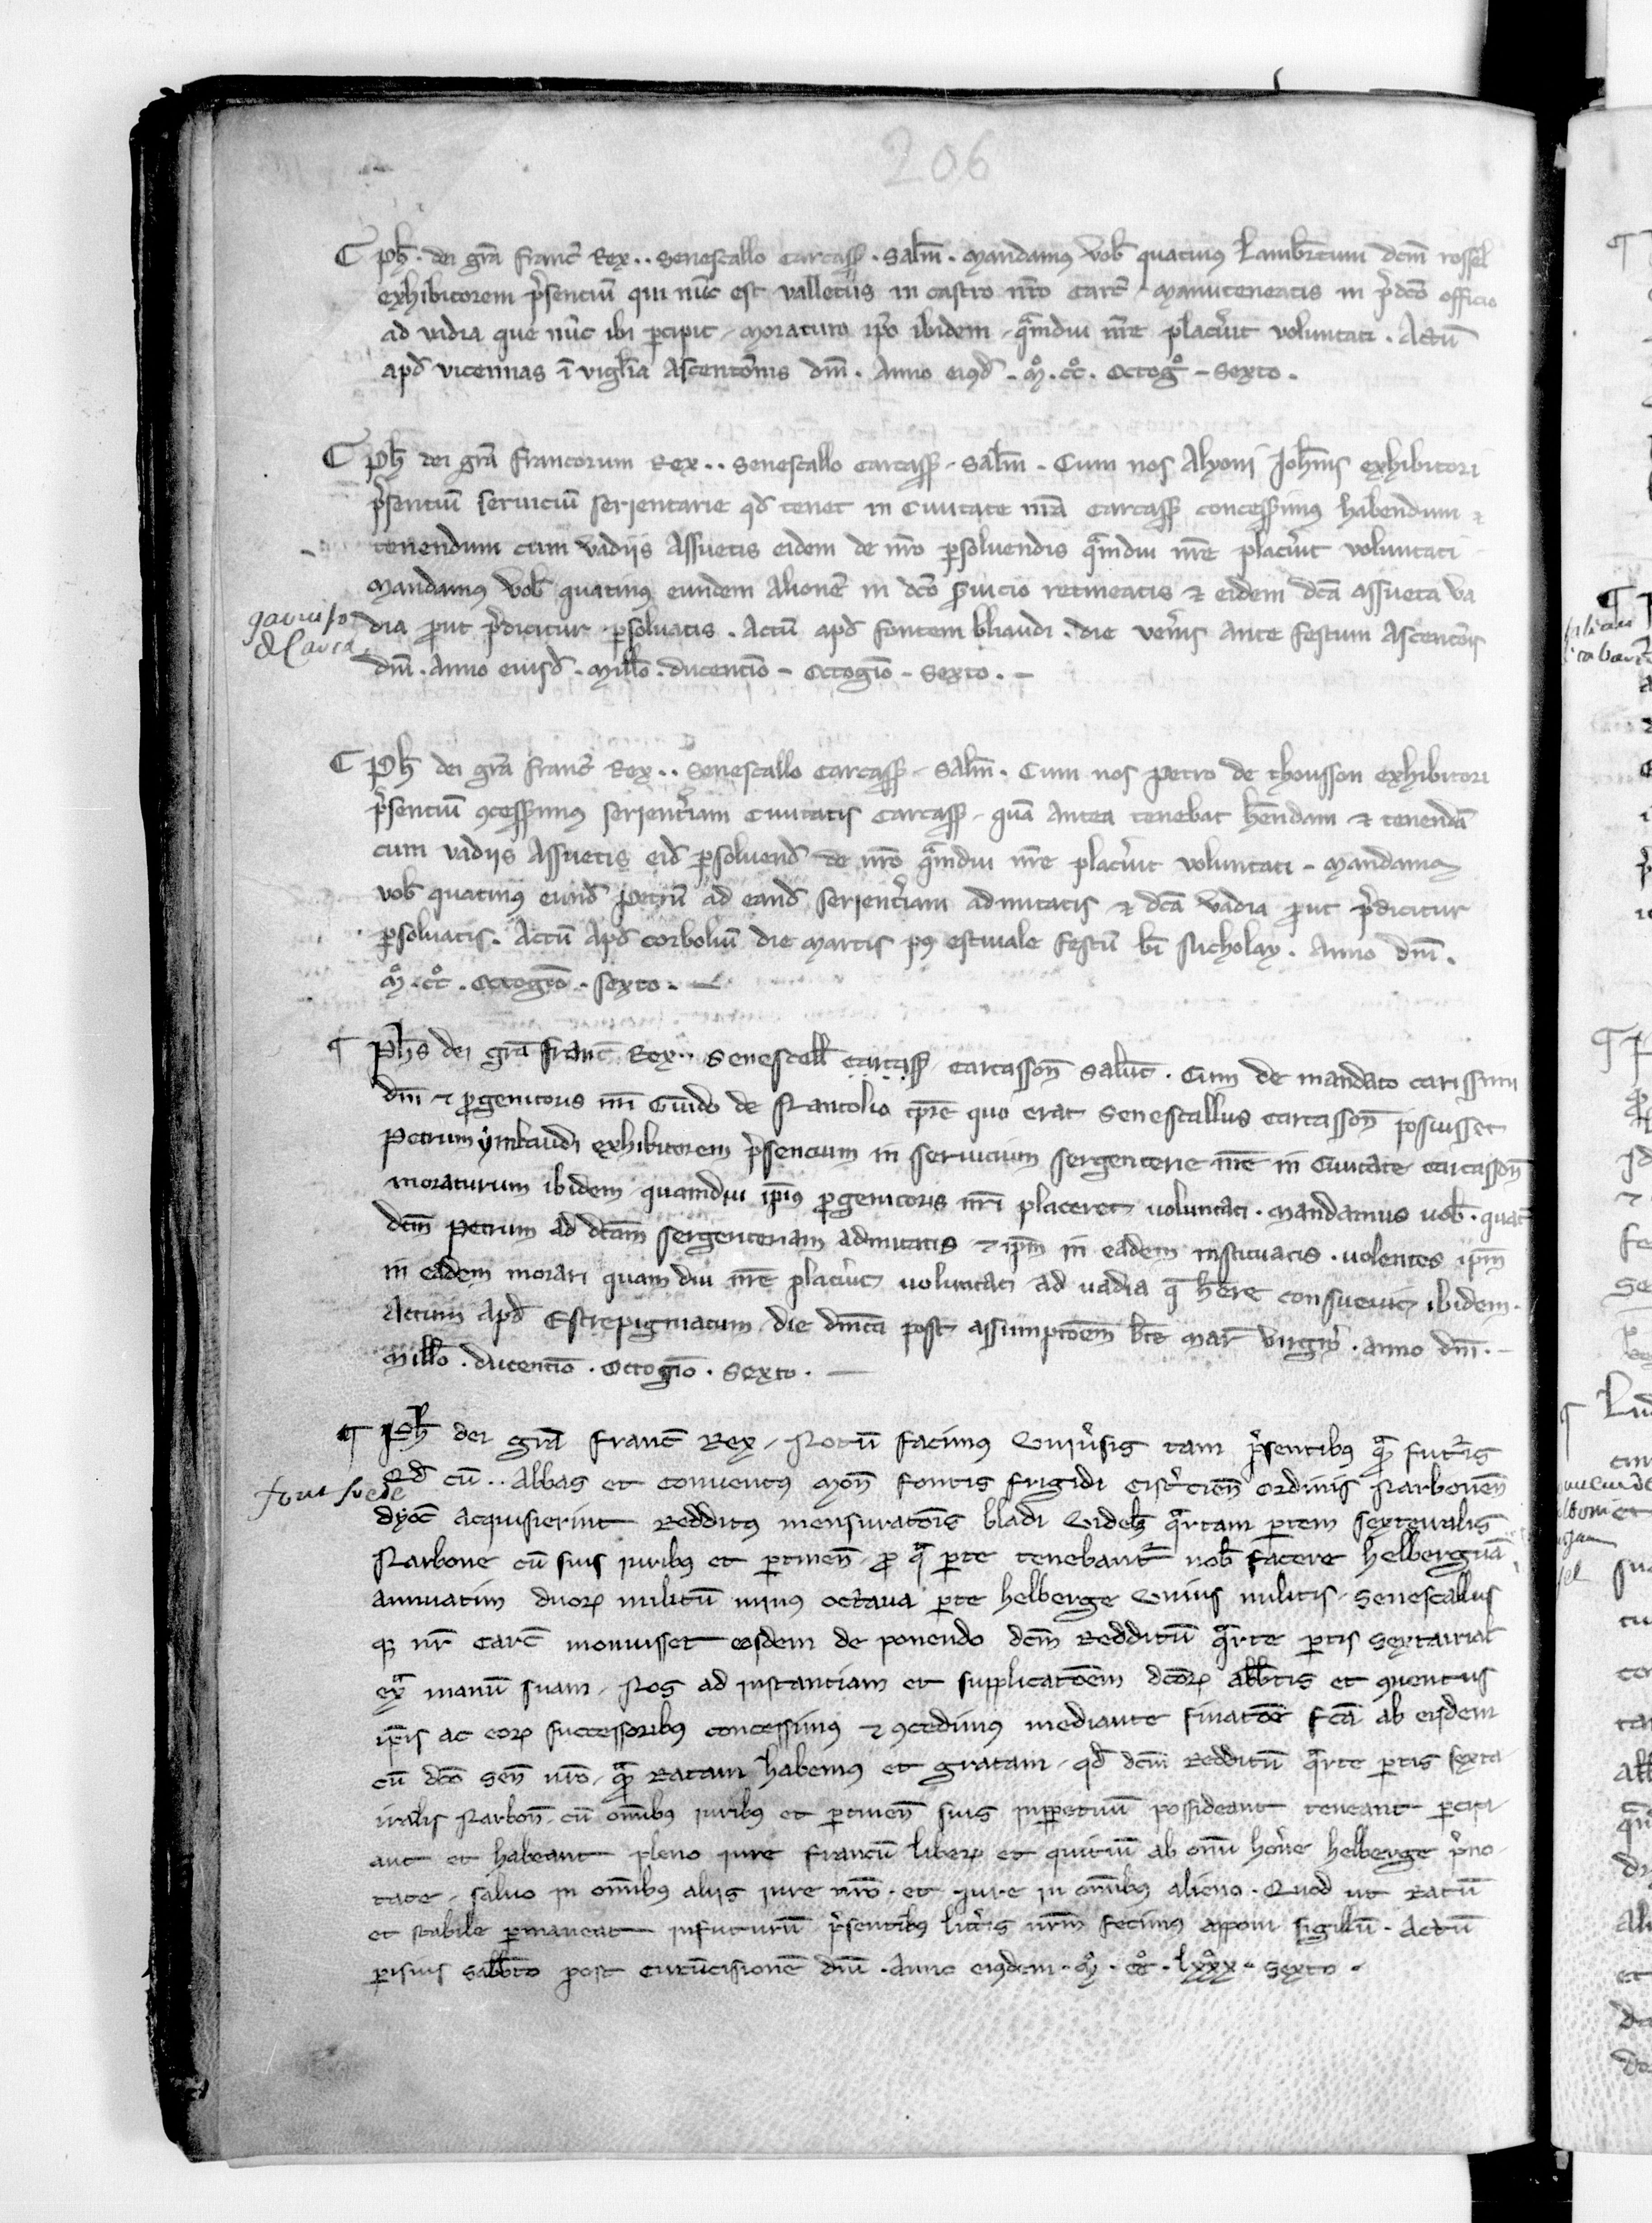 206
¶ Ph̄. dei gr̄a Franc̄ Rex .. Senescallo Carcass̄. Sal̄m. Mandamus vob̄ quatinus Lamb̄tum dc̄m rossel
exhibitorem p̄sentiū qui nūc est valletus in castro nr̄o Carc̄ manuteneatis in p̄dc̄o officio
ad vadia que nūc ibi p̄cipit, moraturo ip̄o ibidem, q̄mdiu nr̄e plac̄uit voluntati. Actū
apd̄ vicennas ī vigl̄ia Ascentōnis dn̄i. Anno eiꝰd̄. M̊. cc̊. Octog̊ - Sexto.
¶ Ph̄ dei gr̄a Francorum Rex .. Senescallo Carcass̄. Sal̄m. Cum nos Alyoni Joh̄nis exhibitori
p̄sentiū seruiciū serjentarie qd̄ tenet in Ciuitate nr̄a Carcass̄ concessimꝰ habendum ⁊
tenendum cum vadiis Assuetis eidem de nr̄o p̄soluendis q̄mdiu nr̄e plac̄uit voluntati
Mandamꝰ vob̄ quatinꝰ eundem Alionē in dc̄o s̄uicio retineatis ⁊ eidem dc̄a assueta va
dia p̄ut p̄dicitur p̄soluatis. Actū apd̄ Fontem bliaudi. die ven̄is ante festum Ascencōis
dn̄i. Anno eiusd̄. Mill̄o. ducentīo - Octogīo - Sexto. -
¶ Ph̄ dei gr̄a Franc̄ Rex .. Senescallo Carcass̄ - Sal̄m. Cum nos Petro de thousson exhibitori
p̄sentiū ꝯcessimus serjent̄iam Ciuitatis Carcass̄ - quā antea tenebat h̄endam ⁊ tenendā
cum vadiis Assuetis eid̄ p̄soluend̄ de nr̄o q̄mdiu nr̄e plac̄uit voluntati - Mandamꝰ
vob̄ quatinꝰ eund̄ Petrū ad eand̄ serjent̄iam admitatis ⁊ dc̄a vadia p̄ut p̄dicitur
p̄soluatis. Actū Apd̄ Corboliū die Martis pꝰ estiuale festū bī Nicholay. Anno dn̄i.
M̊. cc̊. Octogīo. sexto. -
¶ Ph̄s dei gr̄a Franc̄ Rex .. Senescall̄ carcass̄ carcasson̄ Salut̄. Cum de mandato carissimi
dn̄i ⁊ p̄genitoris nr̄i Guido de Nantolio tp̄re quo erat Senescallus carcasson̄ posuisset
Petrum ymbaudi exhibitorem p̄sencium in seruicium sergenterie nr̄e in Ciuitate carcasson̄
moraturum ibidem quamdiu ip̄ius p̄genitoris nr̄i placeret voluntati. Mandamus uob̄. quat̄
dc̄m Petrum ad dc̄am sergenteriam admitatis ⁊ ip̄m in eadem instituatis. uolentes ip̄m
in eadem morari quam diu nr̄e plac̄uit uoluntati ad uadia q̄ h̄ere consueuit ibidem.
Actum apd̄ Estrepigniacum die dn̄ica post assumptōem b̄te Mar̄ Virgīs. Anno dn̄i. -
Mill̄o. ducentīo. Octogīo. Sexto. -
¶ Ph̄ dei gr̄a Franc̄ Rex, Notū facimus Vniu̅sis tam p̄sentibꝰ q̄ futuris
Qd̄ cū .. Abbas et conuentus Mon̄ Fontis frigidi cist̄cien̄ ordinis Narbonen̄
dyoc̄ acquisierint Redditus mensuratōnis bladi videl̄ q̄rtam p̄tem sexteiralis
Narbone cū suis iuribꝰ et p̄tinen̄, p̄ q̄ p̄te tenebant̄ nob̄ facere helberguā
annuatim duoꝝ militū minꝰ octaua p̄te helberge Vnius militis, Senescallus
qꝫ nr̄ Carc̄ monuisset eosdem de ponendo dc̄m Redditū q̄rte p̄tis sextairal̄
ex̄ manū suam, Nos ad instantiam et supplicatōem dc̄oꝝ abb̄tis et ꝯuentus
ip̄is ac eoꝝ successoribꝰ concessimus ⁊ ꝯcedimus mediante finatōe fc̄a ab eisdem
cū dc̄o sen̄ nr̄o, q̄ Ratam habemus et gratam, qd̄ dc̄m Redditū q̄rte p̄tis sexta
iralis Narbon̄. cū om̄ibus iuribꝰ et p̄tinen̄ suis inp̄petuū possideant teneant p̄cipi
ant et habeant pleno iure francū liberꝝ et quitiū ab om̄i hon̄e helberge p̄no
tate, saluo in om̄ibus aliis iure nr̄o. et iure in om̄ibus alieno. Quod ut Ratū
et stabile p̄maneat infuturū p̄sentibꝰ litt̄is nr̄m fecimus apponi sigillū. Actū
p̄isius Sabb̄to post circūcisionē dn̄i. Anno eiꝰdem. M̊. cc̊. lxxx̊. Sexto.
fontfrede